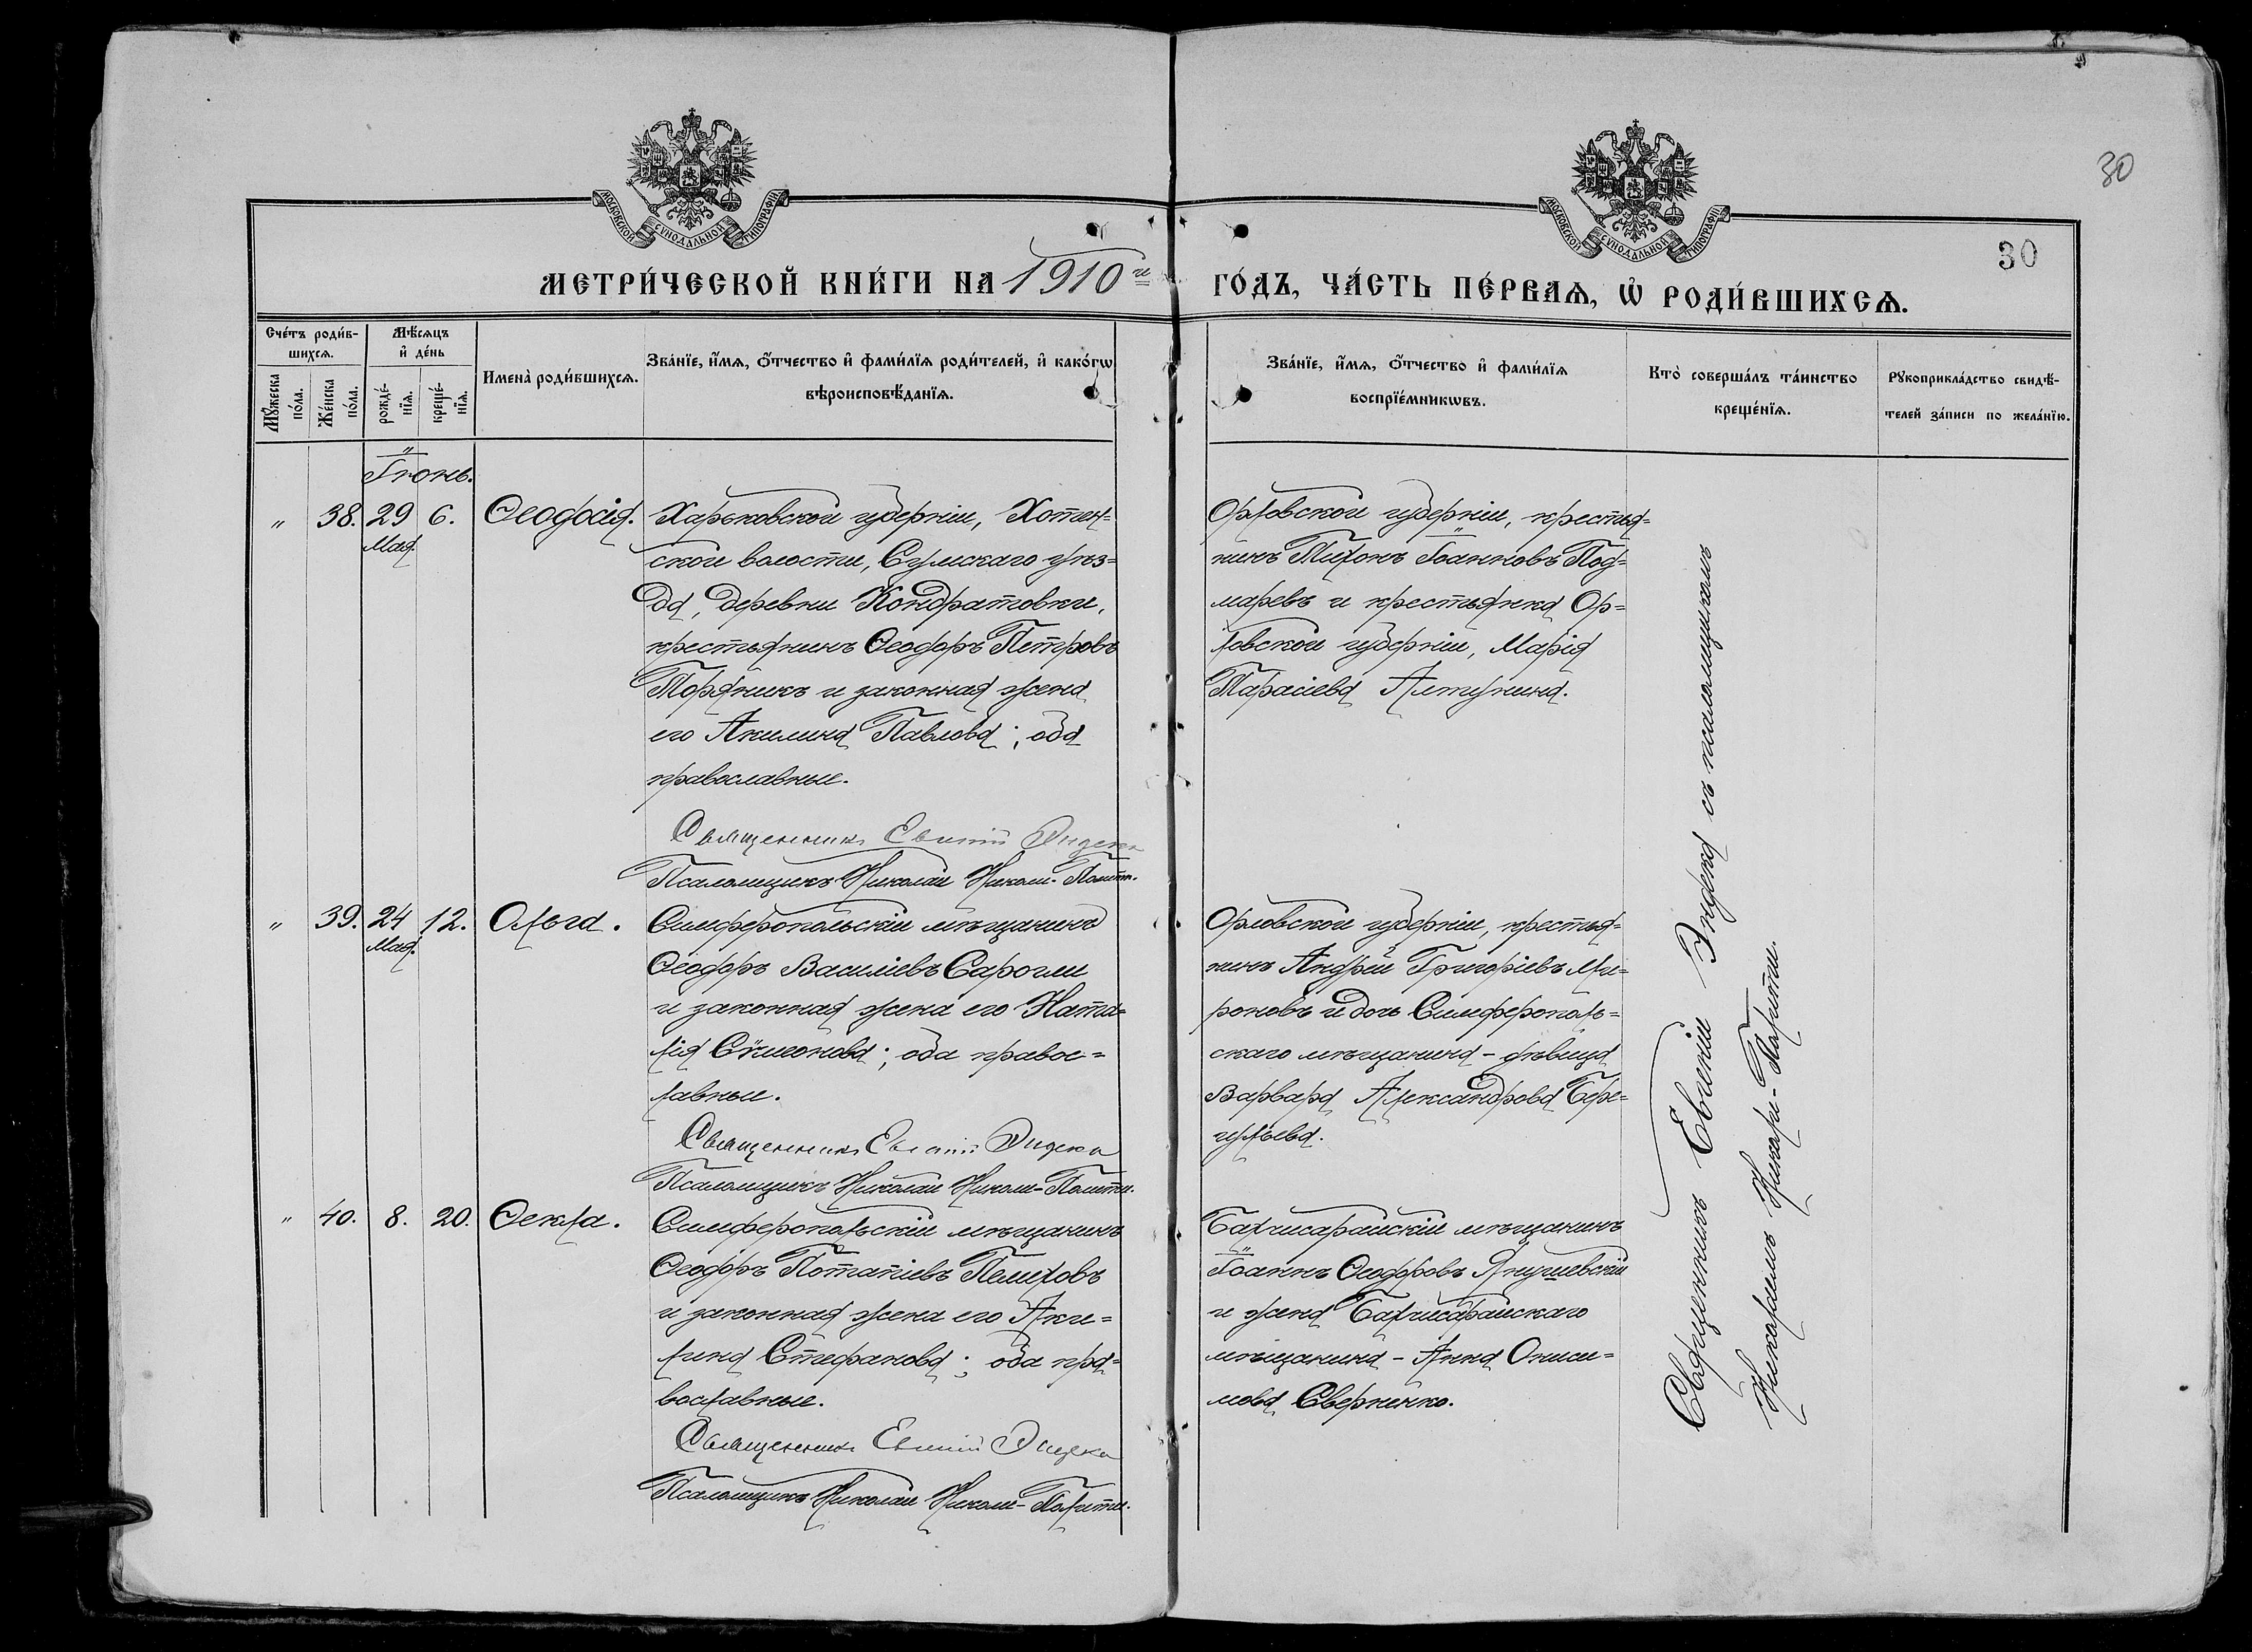 30
МОСКОВСКОЙ СУНОДАЛЬНОЙ ТИПОГРАФІИ
МОСКОВСКОЙ СУНОДАЛЬНОЙ ТИПОГРАФІИ
30
МЕТРИ́ЧЕСКОЙ КНИ́ГИ НА 1910й ГО́ДЪ, ЧА́СТЬ ПЕ́РВАѦ, Ѡ҆ РОДИ́ВШИХСѦ.
Сче́тъ роди́в-
шихсѧ.
Мꙋ́жеска по́ла.
Же́нска по́ла.
Мѣ́сѧцъ и҆ де́нь
рожде́-
нїѧ.
креще́-
нїѧ.
Имена̀ роди́вшихсѧ.
Зва́нїе, и҆́мѧ, ѻ҆́тчество и҆ фами́лїѧ роди́телей, и҆ како́гѡ
вѣроисповѣ́данїѧ.
Зва́нїе, и҆́мѧ, ѻ҆́тчество и҆ фами́лїѧ
воспрїе́мникѡвъ.
Кто̀ соверша́лъ та́инство
креще́нїѧ.
Рꙋкоприкла́дство свидѣ́-
телей за́писи по жела́нїю.
Іюнь.
" 38. 29 6. Ѳеодосія.
Мая.
Харьковской губерніи, Хотен=
ской волости, Сумскаго уѣз=
да, деревни Кондратовки,
крестьянинъ Ѳеодоръ Петровъ
Торяникъ и законная жена
его Акилина Павлова; оба
православные.
Священникъ Евѳимій Эндека
Псаломщикъ Николай Николи-Полити.
Орловской губерніи, крестья=
нинъ Тихонъ Іоанновъ Под=
маревъ и крестьянка Ор=
ловской губерніи, Марія
Тарасіева Алтунина.
" 39. 24 12. Ольга.
Мая.
Симферопольскій мѣщанинъ
Ѳеодоръ Василіевъ Сарогли
и законная жена его Ната=
лія Сѵмеонова; оба правос=
лавные.
Священникъ Евѳимій Эндека
Псаломщикъ Николай Николи-Полити.
Орловской губерніи, крестья=
нинъ Андрей Григоріевъ Ми=
роновъ и дочь Симферополь=
скаго мѣщанина - дѣвица
Варвара Александрова Бере=
гулева.
" 40. 8. 20. Ѳекла.
Симферопольскій мѣщанинъ
Ѳеодоръ Потапіевъ Пелиховъ
и законная жена его Аки=
лина Стефанова; оба пра=
вославные.
Священникъ Евѳимій Эндека
Псаломщикъ Николай Николи-Полити.
Бахчисарайскій мѣщанинъ
Іоаннъ Ѳеодоровъ Янушевскій
и жена Бахчисарайскаго
мѣщанина - Анна Ониси=
мова
Священникъ Евѳимій Эндека съ псаломщикомъ
Николаемъ Николи-Полити.